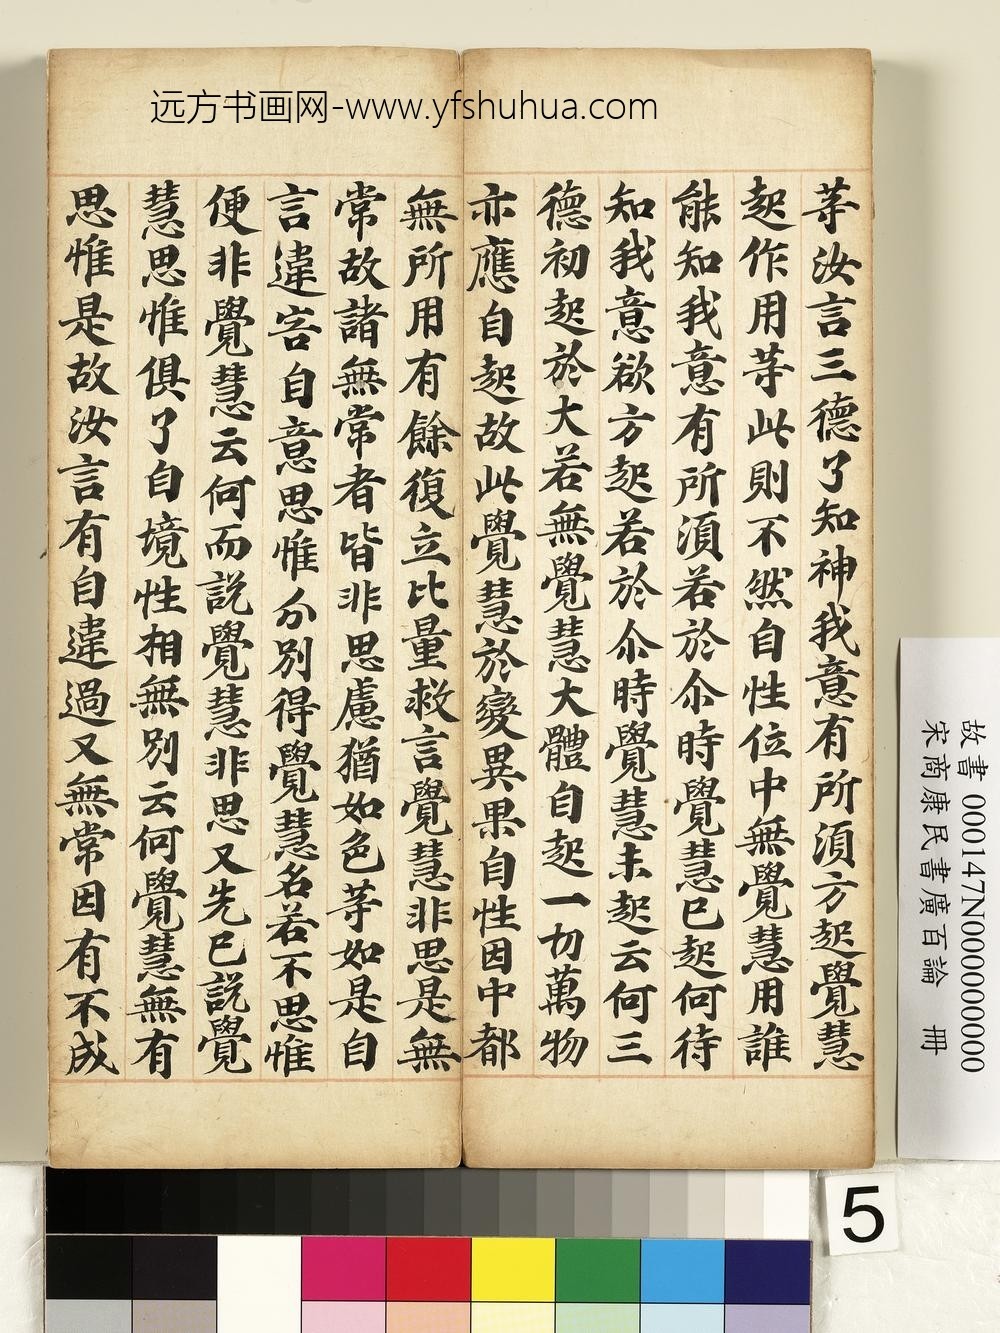 远方书画网-www.yfshuhua.com
等汝言三德了知神我意有所須方起覺慧
起作用等此則不然自性位中無覺慧用誰
能知我意有所須若於尒時覺慧已起何待
知我意欲方起若於尒時覺慧未起云何三
德初起於大若無覺慧大體自起一切萬物
亦應自起故此覺慧於變異果自性因中都
無所用有餘復立比量救言覺慧非思是無
常故諸無常者皆非思慮猶如色等如是自
言違害自意思惟分別得覺慧名若不思惟
便非覺慧云何而說覺慧非思又先已說覺
慧思惟俱了自境性相無別云何覺慧無有
思惟是故汝言有自違過又無常因有不成
故書 000147N000000000
宋商康民書廣百論 冊
5